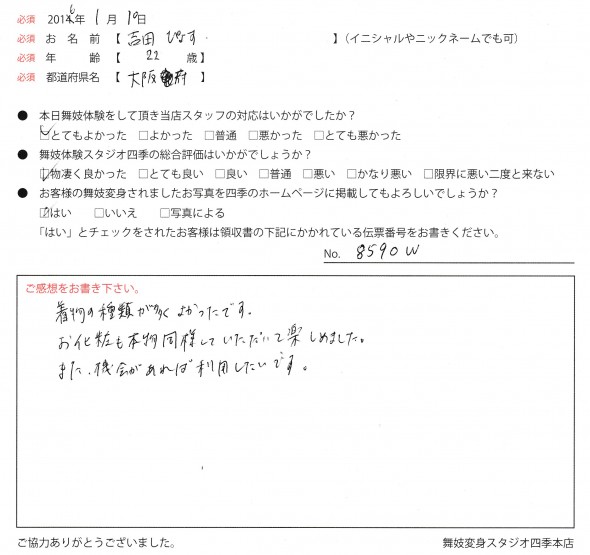 必須 2016年 1月 10日
必須 お名前【 吉田 】(イニシャルやニックネームでも可)
必須 年 齢【 22 歳】
必須 都道府県名【 大阪府 】
● 本日舞妓体験をして頂き当店スタッフの対応はいかがでしたか?
☑とてもよかった □よかった □普通 □悪かった □とても悪かった
● 舞妓体験スタジオ四季の総合評価はいかがでしょうか?
☑物凄く良かった □とても良い □良い □普通 □悪い □かなり悪い □限界に悪い二度と来ない
● お客様の舞妓変身されましたお写真を四季のホームページに掲載してもよろしいでしょうか?
☑はい □いいえ □写真による
「はい」とチェックをされたお客様は領収書の下記にかかれている伝票番号をお書きください。
No. 8590W
ご感想をお書き下さい。
着物の種類が多くよかったです。
お化粧も本物同様していただいて楽しめました。
また、機会があれば利用したいです。
ご協力ありがとうございました。 舞妓変身スタジオ四季本店